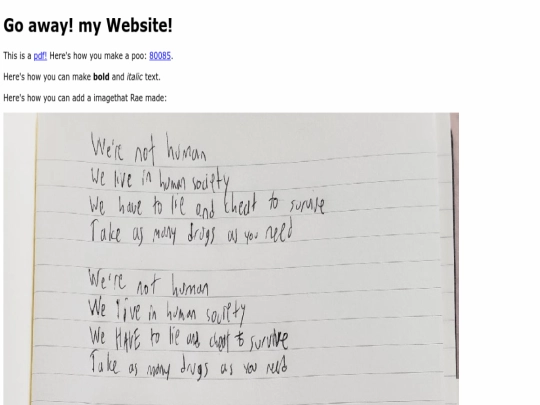 Go away! my Website!
This is a pdf! Here's how you make a poo: 80085.
Here's how you can make bold and italic text.
Here's how you can add a imagethat Rae made:
We're not human
We live in human society
We have to lie and cheat to survive
Take as many drugs as you need
We're not human
We live in human society
We HAVE to lie and cheat to survive
Take as many drugs as you need